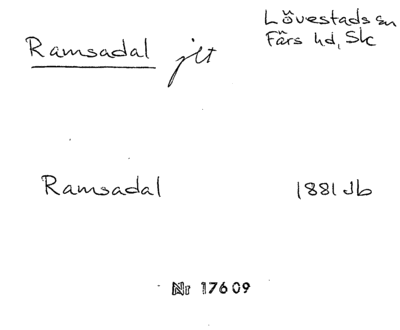 Ramsadal jlt
Lövestads sn
Färs hd, Sk
Ramsadal 1881 Jb
Nr 17609